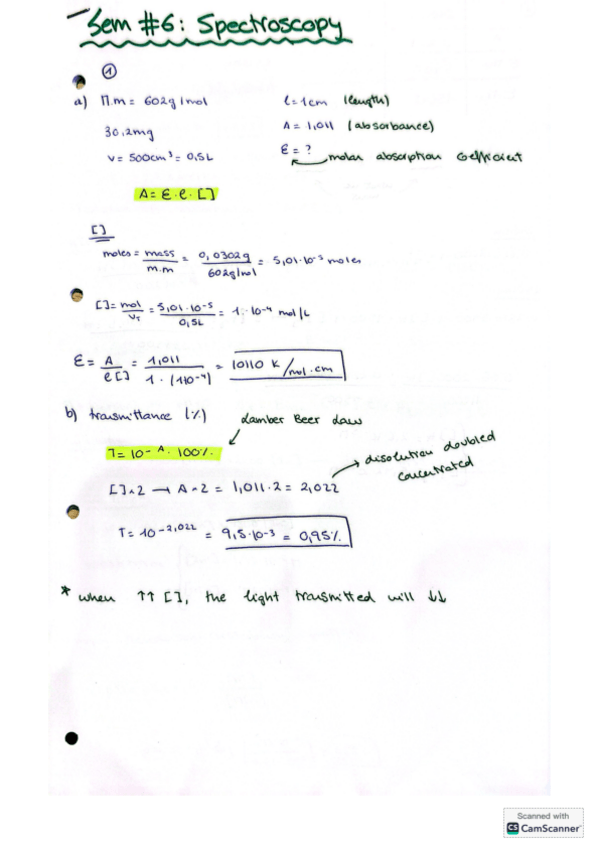 Sem #6: Spectroscopy
①
a) M.m = 602g/mol l = 1cm (length)
30,2mg A = 1,011 (absorbance)
V = 500cm³ = 0,5L ε = ?
molar absorption coefficient
A = ε · l · []
[]
moles = mass/m.m = 0,0302g/602g/mol = 5,01·10⁻⁵ moles
[] = mol/V_T = 5,01·10⁻⁵/0,5L = 1·10⁻⁴ mol/L
ε = A/l[] = 1,011/1·(1·10⁻⁴) = 10110 L/mol·cm
b) transmittance (%) Lamber Beer Law
T = 10⁻ᴬ · 100%
disolution doubled
concentrated
[]·2 → A·2 = 1,011·2 = 2,022
T = 10⁻²,⁰²² = 9,5·10⁻³ = 0,95%
* when ↑↑ [], the light transmitted will ↓↓
Scanned with
CS CamScanner